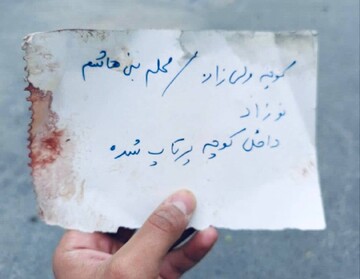 کوچه ولی‌زاده / محله بنی هاشم
نوزاد
داخل کوچه پرتاپ شده